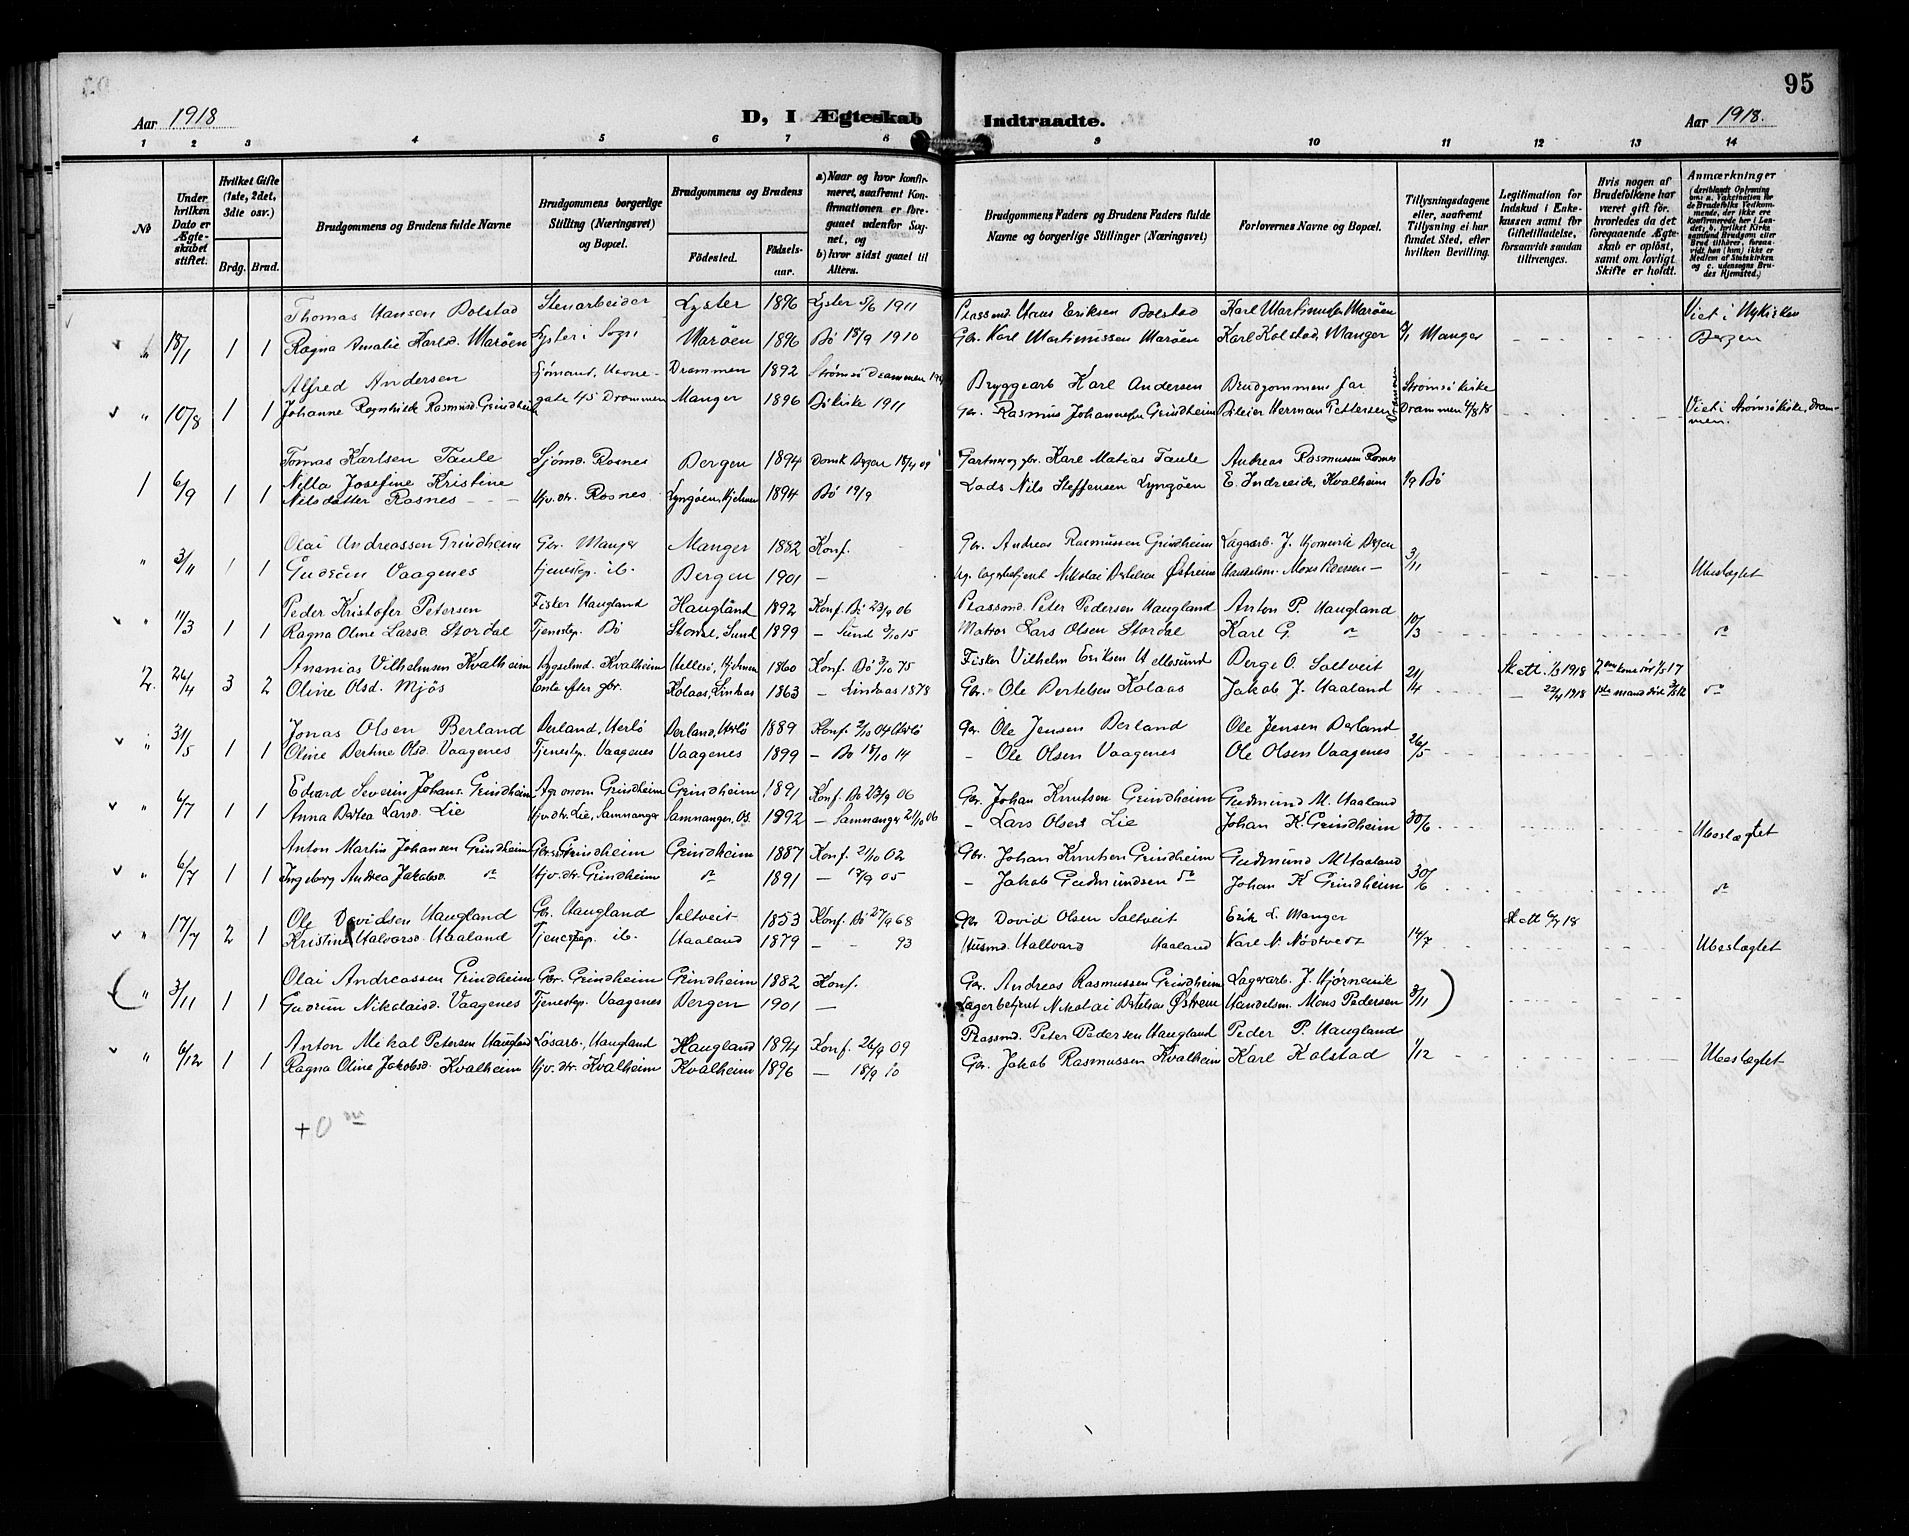 95
Aar 1918
D, I Ægteskab Indtraadte.
Aar 1918.
1 2 3 4 5 6 7 8 9 10 11 12 13 14
No
Under hvilken Dato er Ægteskabet stiftet.
Hvilket Gifte (1ste, 2det, 3die osv.)
Brdg. Brud.
Brudgommens og Brudens fulde Navne
Brudgommens borgerlige Stilling (Næringsvei) og Bopæl.
Brudgommens og Brudens
Födested. Födselsaar.
a) Naar og hvor konfirmeret, saafremt Konfirmationen er foregaaet udenfor Sognet, og
b) hvor sidst gaaet til Alters.
Brudgommens Faders og Brudens Faders fulde Navne og borgerlige Stillinger (Næringsvei)
Forlovernes Navne og Bopæl.
Tillysningsdagene eller, saafremt Tillysning ei har fundet Sted, efter hvilken Bevilling.
Legitimation for Indskud i Enkekassen samt for Giftetilladelse, forsaavidt saadan tiltrænges.
Hvis nogen af Brudefolkene har været gift för, hvorledes da det foregaaende Ægteskab er oplöst, samt om lovligt Skifte er holdt.
Anmærkninger
Thomas Hansen Bolstad Stenarbeider Lyster 1896 Lyster 5/6 1911 Plassmd. Hans Eriksen Bolstad Karl Martinussen Marøen Viet i Nykirken
" 18/1 1 1 Ragna Amalie Karlsd. Marøen Lyster i Sogn Marøen 1896 Bø 18/9 1910 Gbr. Karl Martinussen Marøen Karl Kolstad, Manger Manger Bergen
Alfred Andersen Sjømand, Havne- Drammen 1892 Strømsø Drammen Bryggearb Karl Andersen Brudgommens far Strømsø kirke
" 10/8 1 1 Johanne Ragnhilde Rasmusd Grindheim gate 45 Drammen Manger 1896 Bø kirke 1911 Gbr. Rasmus Johannessen Grindheim Herman Pettersen Drammen Drammen 4/8 18 Viet i Strømsø kirke, Drammen.
Tomas Karlsen Taule Sjømd. Rosnes Bergen 1894 Domk Bergen 18/4 09 Gartner og gbr. Karl Matias Taule Andreas Rasmussen Rosnes
1 6/9 1 1 Nilla Josefine Kristine Nilsdatter Rosnes Hjv. dr. Rosnes Lyngøen, Hjelmen 1894 Bø 19/9 Lods Nils Steffensen Lyngøen E. Indreeide, Kvalheim 1/9 Bø
Olai Andreassen Grindheim Gbr. Manger Manger 1882 Konf. Gbr. Andreas Rasmussen Grindheim Lagerarb. J. Bergen
" 3/11 1 1 Gudrun Vaagenes tjenestep. ib. Bergen 1901 – Nikolai Bertelsen Østrem Handelsm. Mons Pedersen – 3/11 Ubeslægtet
Peder Kristofer Petersen Fisker Haugland Haugland 1892 Konf. Bø 23/9 06 Plassmd. Peter Pedersen Haugland Anton P. Haugland
" 11/3 1 1 Ragna Oline Larsd. Stordal Tjenestep. Bø Stordal, Sund 1899 – Sund 3/10 15 Matros Lars Olsen Stordal Karl G. do 10/3 do
Ananias Vilhelmsen Kvalheim Kvalheim Hellesø, Hjelmen 1860 Konf. Bø 3/10 75 Fisker Vilhelm Eriksen Hellesund Berge O. Saltveit Sk. att. 1/3 1918 2den kone død 1/5 17
2. 26/4 3 2 Oline Olsd. Mjøs Enke efter gbr. Kolaas, Lindaas 1863 – Lindaas 1878 Gbr. Ole Bertelsen Kolaas Jakob J. Haaland 21/4 – 22/4 1918 1ste mand død 3/5 12 do
Jonas Olsen Berland Berland, Herlø Berland, Herlø 1889 Konf. 2/10 04 Herlø Gbr. Ole Jensen Berland Ole Jensen Berland
" 31/5 1 1 Oline Bertine Olsd. Vaagenes Tjenestep. Vaagenes Vaagenes 1899 – Bø 18/10 14 – Ole Olsen Vaagenes Ole Olsen Vaagenes 26/5
Edvard Severin Johans. Grindheim Agronom Grindheim Grindheim 1891 Konf. Bø 23/9 06 Gbr. Johan Knutsen Grindheim Gudmund M. Haaland
" 6/7 1 1 Anna Bertea Larsd. Lie Hjv. dtr. Lie, Samnanger Samnanger, Os. 1892 – Samnanger 21/10 06 – Lars Olsen Lie Johan K. Grindheim 30/6 Ubeslægtet
Anton Martin Johansen Grindheim Grindheim Grindheim 1887 Konf. 2/10 02 Gbr. Johan Knutsen Grindheim Gudmund M. Haaland
" 6/7 1 1 Ingeborg Andrea Jakobsd. do Hjv. dtr. Grindheim do 1891 – 17/9 05 – Jakob Gudmundsen do Johan K Grindheim 30/6 do
Ole Davidsen Haugland Gbr. Haugland Saltveit 1853 Konf. Bø 27/9 68 Gbr. David Olsen Saltveit Erik L. Manger Sk. att 6/7 18
" 17/7 2 1 Kristine Halvorsd. Haaland Tjenestep. ib. Haaland 1879 – – 93 Husmd Hallvard Haaland Karl N. Nøstvedt 14/7 Ubeslægtet
Olai Andreassen Grindheim Gbr. Grindheim Grindheim 1882 Konf. Gbr. Andreas Rasmussen Grindheim Lagerarb. J. Hjørnevik
( " 3/11 1 1 Gudrun Nikolaisd. Vaagenes Tjenestep. Vaagenes Bergen 1901 – Lagerbetjent Nikolai Bertelsen Østrem Handelsm. Mons Pedersen 3/11 )
Anton Mikal Petersen Haugland Løsarb., Haugland Haugland 1894 Konf. 26/9 09 Plassmd. Peter Pedersen Haugland Peder P. Haugland
" 6/12 1 1 Ragna Oline Jakobsd. Kvalheim Hjv. dtr. Kvalheim Kvalheim 1896 – 18/9 10 Gbr. Jakob Rasmussen Kvalheim Karl Kolstad 1/12 Ubeslægtet